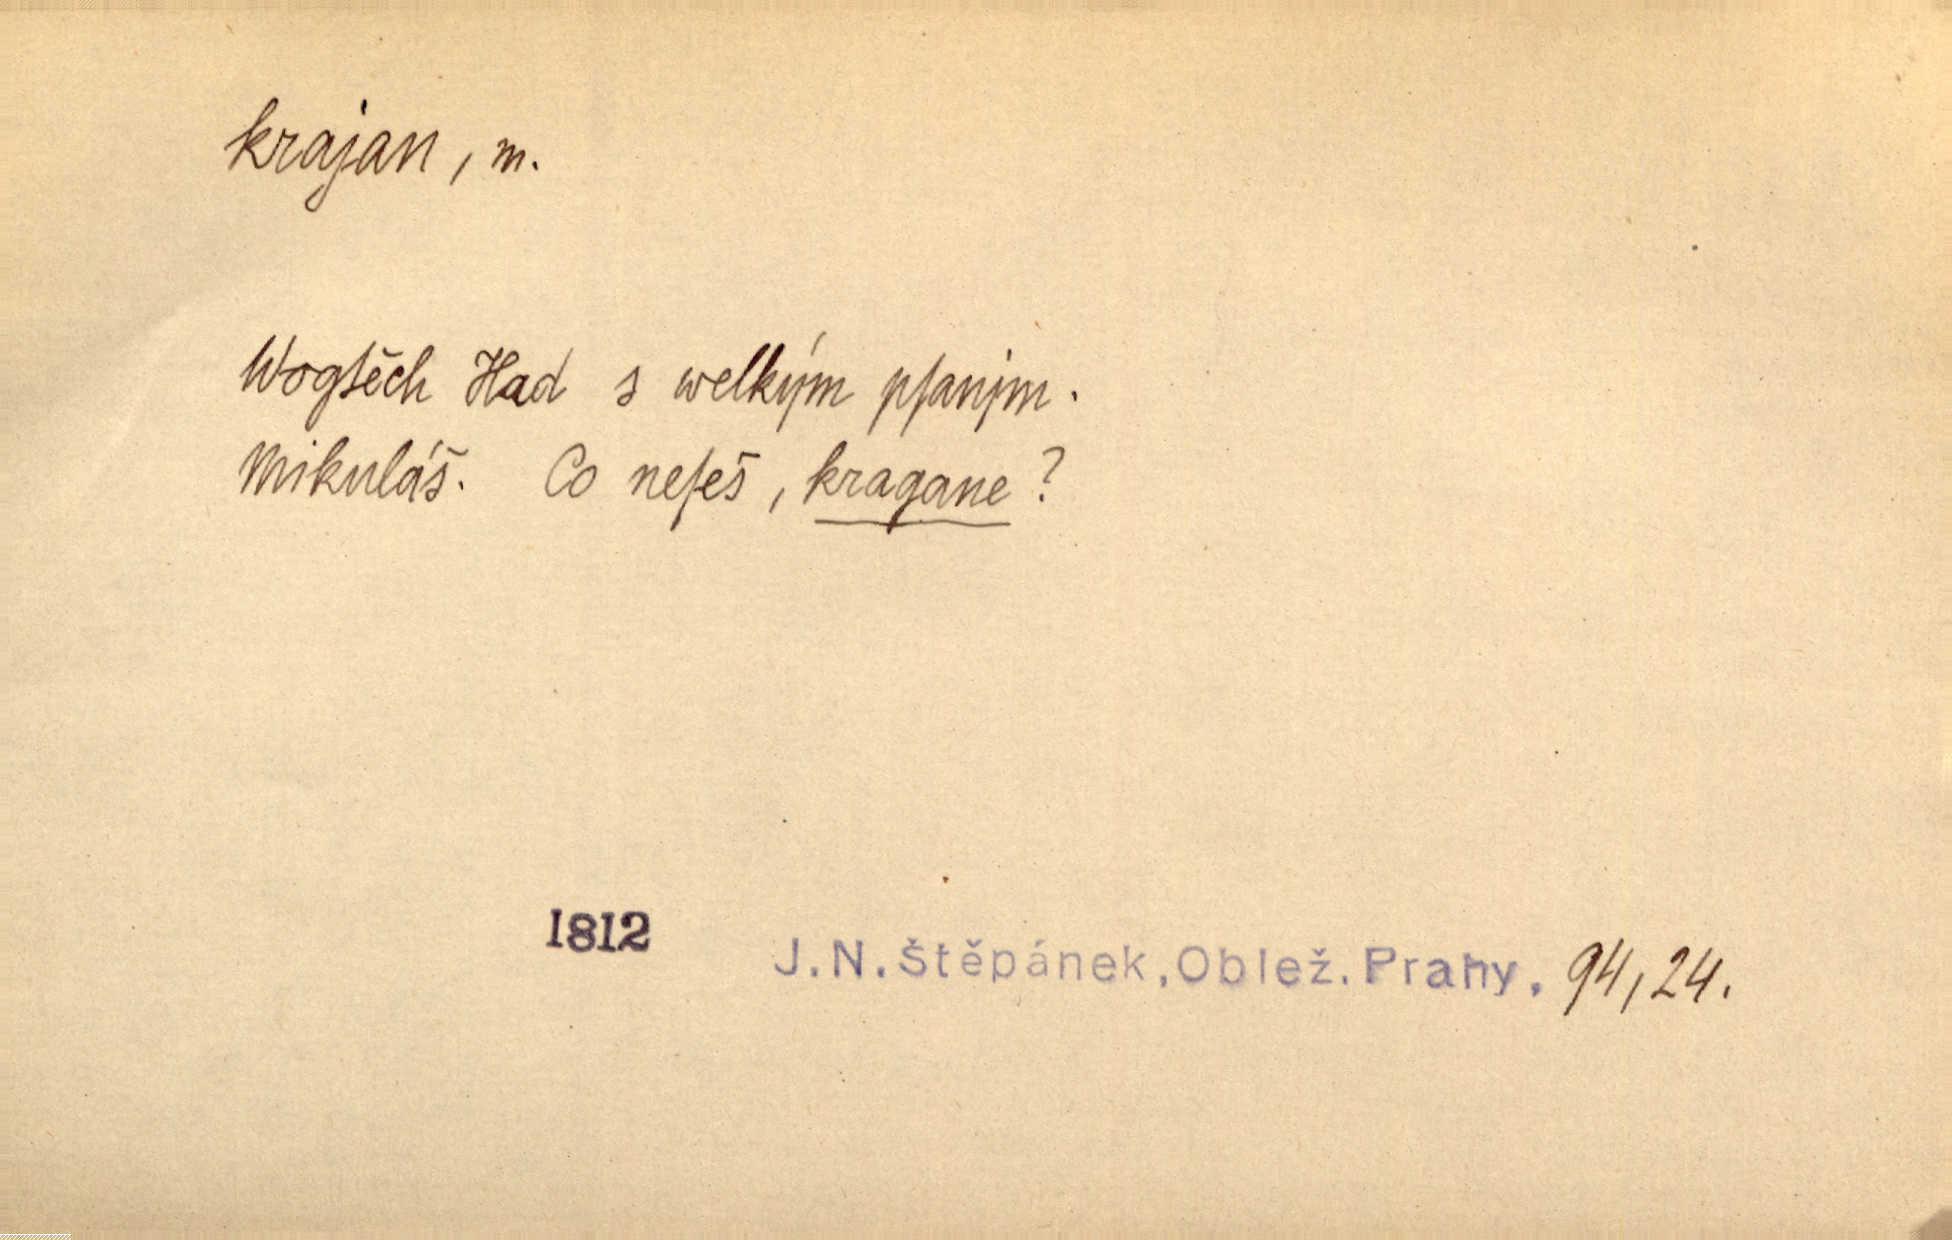 krajan, m.
Wogtěch Had s welkým pſanjm.
Mikuláš. Co neſeš, kragane?
1812 J.N.Štěpánek,Oblež.Prahy. 94,24.